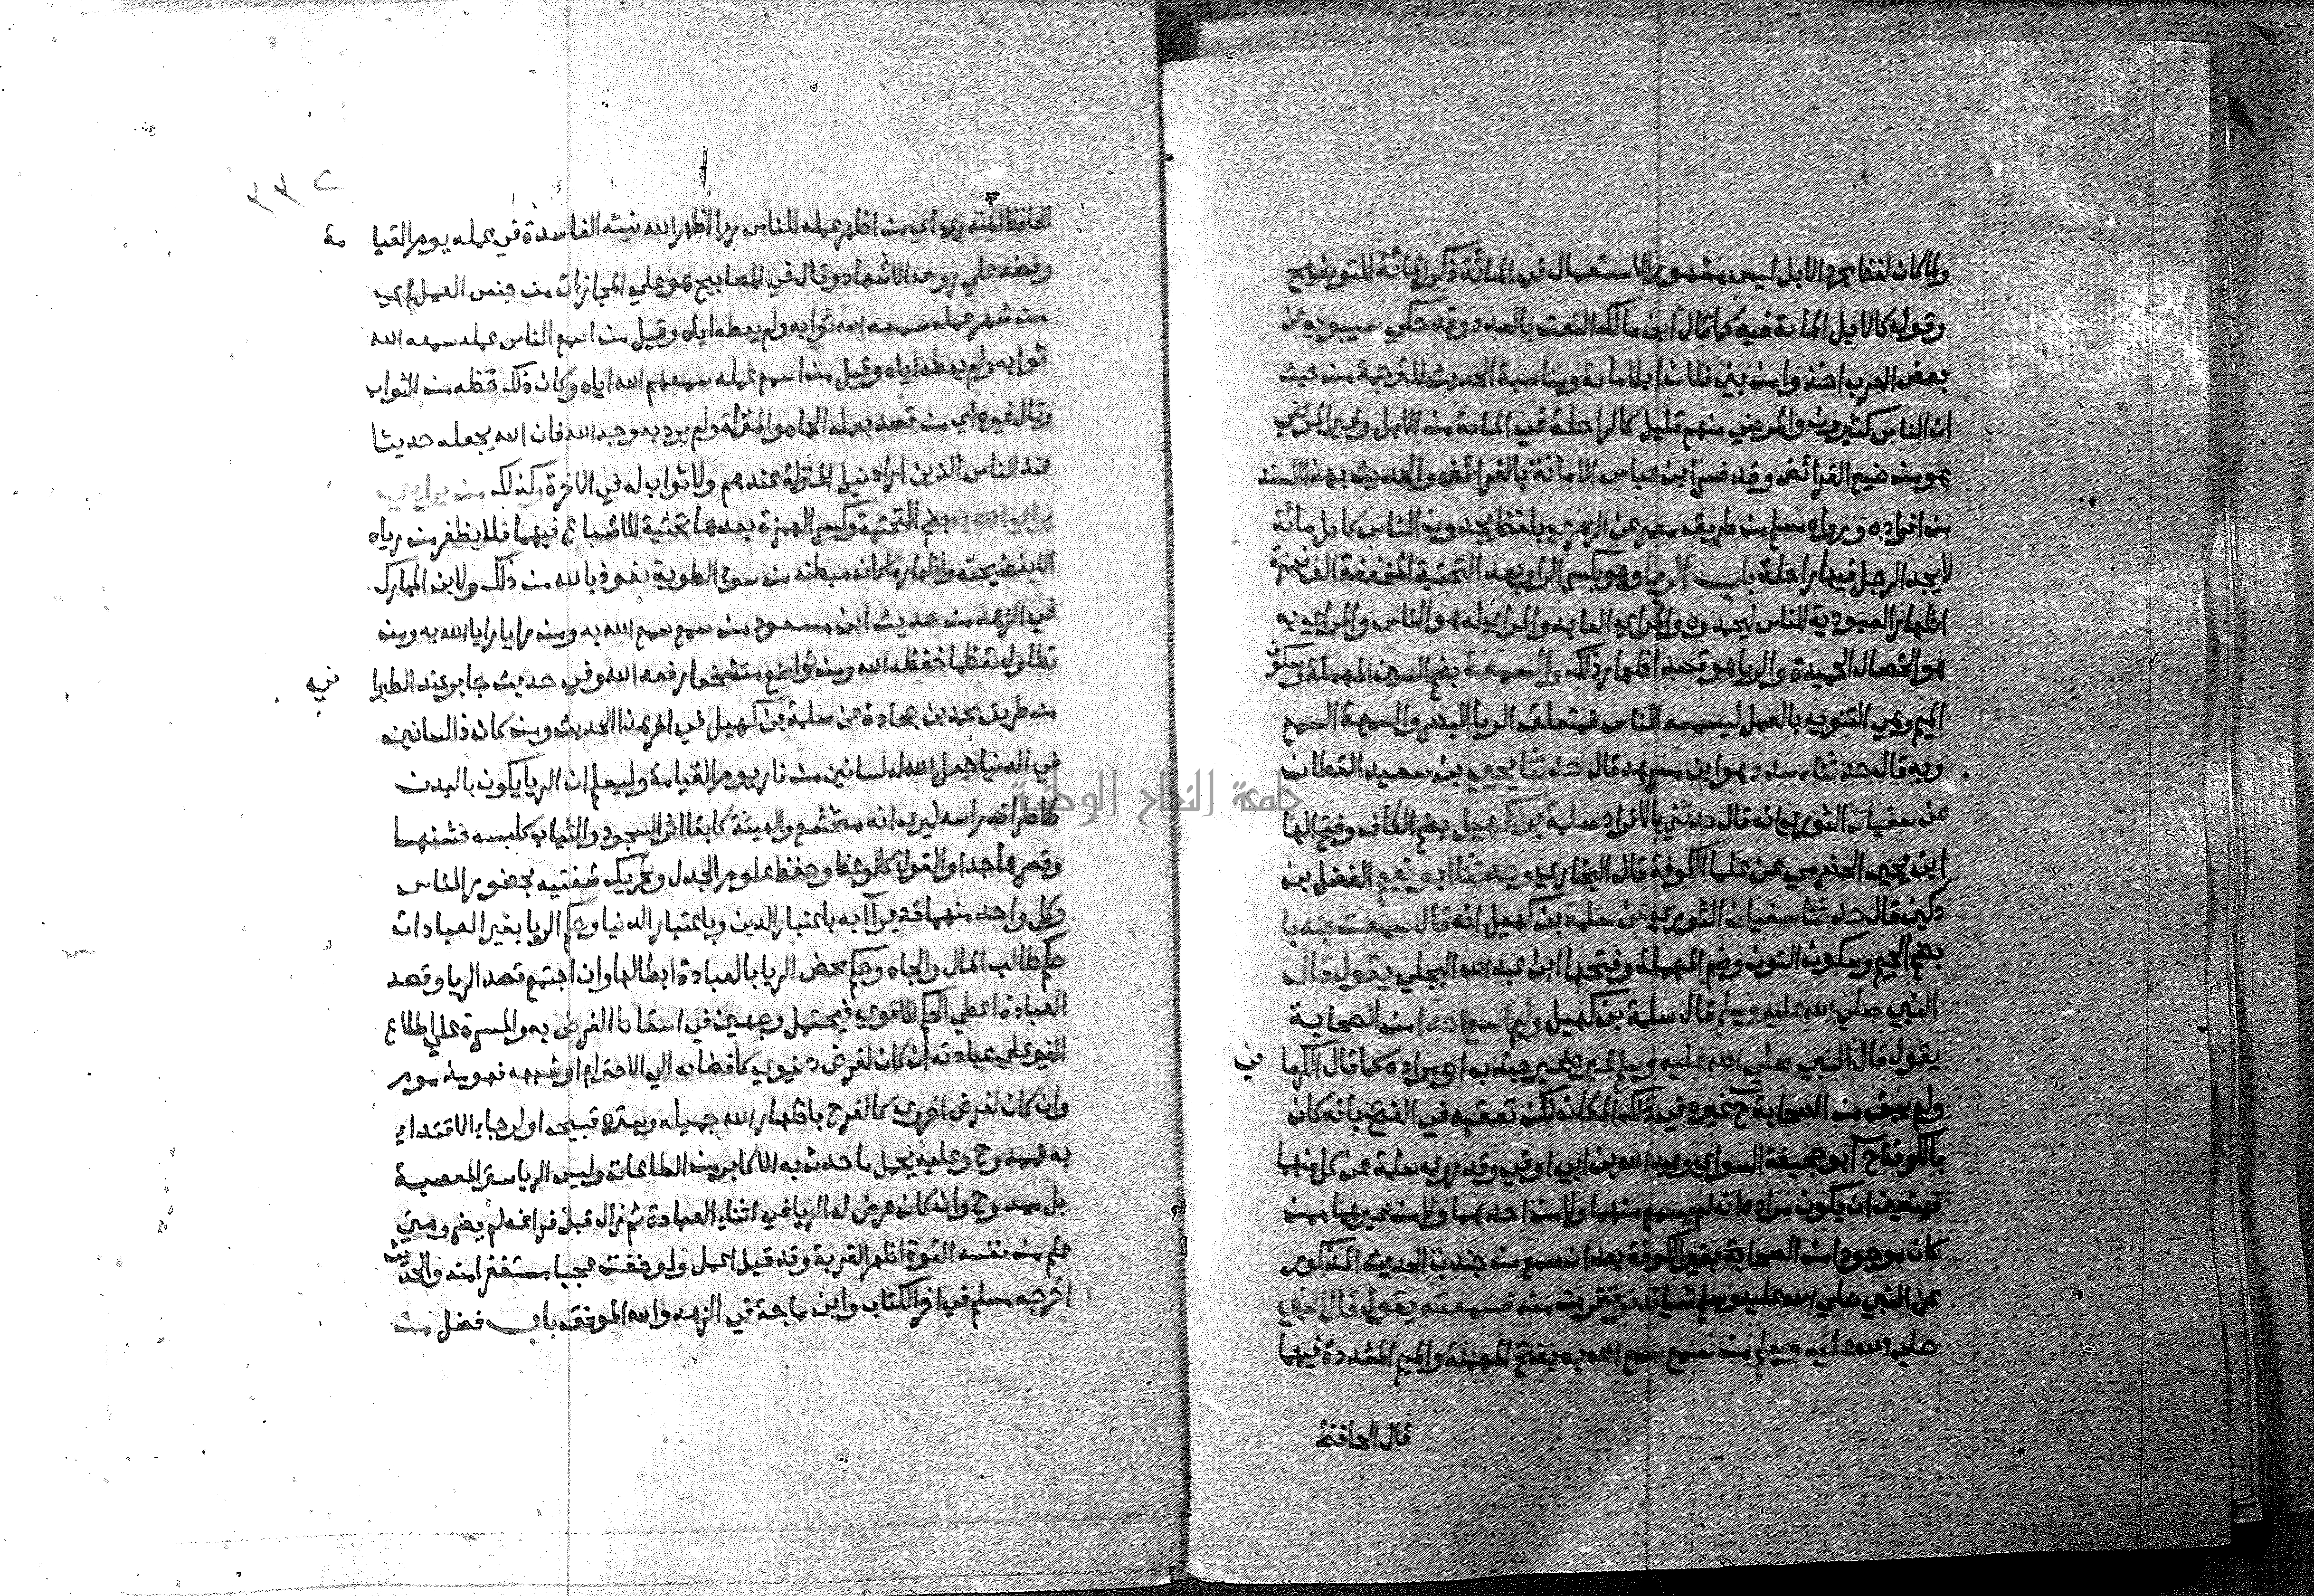 ولما كان لفظ مجرد الابل ليس مشهور الاستعمال في المائة ذكر المائة للتوضيح
وقوله كالابل المائة فيه كما قال ابن مالك النعت بالعدد وقد حكي سيبويه عن
بعض العرب اخذوا من بني فلان ابلا ماية ومناسبة الحديث للترجمة من حيث
ان الناس كثيرون والمرضي منهم قليل كالراحلة في الماية من الابل وغير المرضي
هو من ضيع الفرائض وقد فسر ابن عباس الامانة بالفرائض والحديث بهذا السند
من افراده ورواه مسلم من طريق معمر عن الزهري بلفظ تجدون الناس كابل مائة
لا يجد الرجل فيها راحلة باب الريا وهو بكسر الرا وبعد التحتية المخففة الف فهمزة
اظهار العبودية للناس ليحمدوه والمرائي العابد والمرايي له هو الناس والمرايي به
هو الخصال الحميدة والريا هو قصد اظهار ذلك والسمعة بضم السين المهملة وسكون
الميم وهي التنويه بالعمل ليسمعه الناس فمتعلق الريا البصر والسمعة السمع
وبه قال حدثنا مسدد هو ابن مسرهد قال حدثنا يحيي بن سعيد القطان
عن سفيان الثوري انه قال حدثني بالافراد سلمة بن كهيل بضم الكاف وفتح الها
ابن يحيي الحضرمي من علما الكوفة قال البخاري وحدثنا ابو نعيم الفضل بن
دكين قال حدثنا سفيان الثوري عن سلمة بن كهيل انه قال سمعت جندبا
بضم الجيم وسكون النون وضم المهملة وفتحها ابن عبد الله البجلي يقول قال
النبي صلي الله عليه وسلم قال سلمة بن كهيل ولم اسمع احدا من الصحابة
يقول قال النبي صلي الله عليه وسلم غيره غير جندب او مراده كما قال الكرما ني
ولم يبق من الصحابة ح غيره في ذلك المكان لكن تعقبه في الفتح بانه كان
بالكوفة ح ابو جحيفة السواي وعبد الله بن ابي اوفي وقد روي سلمة عن كل منهما
فيتعين ان يكون مراده انه لم يسمع منهما ولا من احدهما ولا من غيرهما ممن
كان موجودا من الصحابة بغير الكوفة بعد ان سمع من جندب الحديث المذكور
عن النبي صلي الله عليه وسلم شيا فدنوت قربت منه فسمعته يقول قال النبي
صلي الله عليه وسلم من سمع سمع الله به بفتح المهملة والميم المشددة فيهما
قال الحافظ
٢٣٢
الحافظ المنذري اي من اظهر عمله للناس ريا اظهر الله نيته الفاسدة في عمله يوم القيا مة
وفضحه علي روس الاشهاد وقال في المصابيح هو علي المجازات من جنس العمل اي
من شهر عمله سمعه الله ثوابه ولم يعطه اياه وقيل من اسمع الناس عمله سمعه الله
ثوابه ولم يعطه اياه وقيل من اسمع عمله سمعهم الله اياه وكان ذلك حظه من الثواب
وقال غيره اي من قصد بعمله الجاه والمنزلة ولم يرد به وجه الله فان الله يجعله حديثا
عند الناس الذين اراد نيل المنزلة عندهم ولا ثواب له في الاخرة وكذلك من يرايي
يرايي الله به بضم التحتية وكسر الهمزة بعدها تحتية للاشباع فيهما فلا يظفر من رياه
الا بفضيحته واظهار ما كان يبطنه من سوء الطوية نعوذ بالله من ذلك ولابن المبارك
في الزهد من حديث ابن مسعود من سمع سمع الله به ومن رايا رايا الله به ومن
تطاول تعظما خفظه الله ومن تواضع تخشعا رفعه الله وفي حديث جابر عند الطبرا ني
من طريق محمد بن جحادة عن سلمة بن كهيل في اخر هذا الحديث ومن كان ذا لسانين
في الدنيا جعل الله له لسانين من نار يوم القيامة وليعلم ان الريا يكون بالبدن
كاطراقه راسه ليري انه متخشع والهيئة كابقا اثر السجود والثياب كلبسه خشنها
وقصرها جدا والقول كالوعظ وحفظ علوم الجدل وتحريك شفتيه بحضور الناس
وكل واحد منهما قد يراآ به باعتبار الدين وباعتبار الدنيا وحكم الريا بغير العبادات
حكم طالب المال والجاه وحكم محض الريا بالعبادة ابطالها وان اجتمع قصد الريا وقصد
العبادة اعطي الحكم للاقوي فيحتمل وجهين في اسقاط الفرض به والمسرة علي اطلاع
الغير علي عبادته ان كان لغرض دنيوي كافضائه الي الاحترام او شبهه فهو مذموم
وان كان لغرض اخروي كالفرح باظهار الله جميله وستره قبيحه او لرجاء الاقتداء
به فممدوح وعليه يحمل ما حدث به الاكابر من الطاعات وليس الريا ستر المعصية
بل ممدوح وان كان عرض له الريا في اثناء العبادة ثم زال قبل فراغه لم يضر ومتي
علم من نفسه القوة اظهر القربة وقد قيل اعمل ولو خفت عجبا مستغفرا منه والحديث
اخرجه مسلم في اخر الكتاب وابن ماجة في الزهد والله الموفق باب فضل من
جامعة النجاح الوطنية